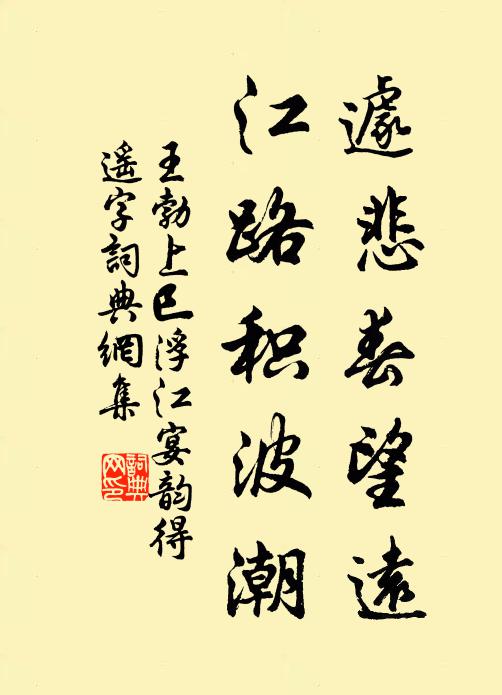 遽悲春望遠
江路积波潮
王勃上巳浮江宴韵得
遥字詞典網集
詞典网印